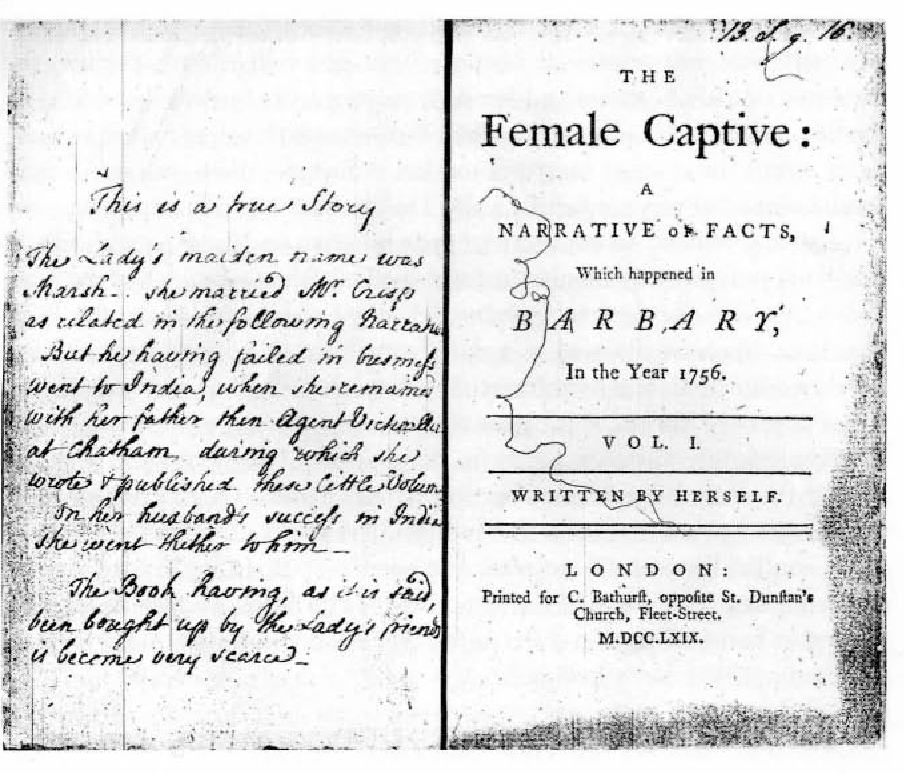 This is a true Story
The Lady's maiden name was
Marsh. she married Mr. Crisp
as related in the following Narra
But he having failed in business
went to India, when she remained
with her father then Agent Victualler
at Chatham, during which she
wrote & published these little Volum
On her husband's success in India
she went thither to him _
The Book having, as it is said,
been bought up by the Lady's friends
is become very scarce _
THE
Female Captive:
A
NARRATIVE OF FACTS,
Which happened in
BARBARY,
In the Year 1756.
VOL. I.
WRITTEN BY HERSELF.
LONDON:
Printed for C. Bathurst, opposite St. Dunstan's
Church, Fleet-Street.
M.DCC.LXIX.